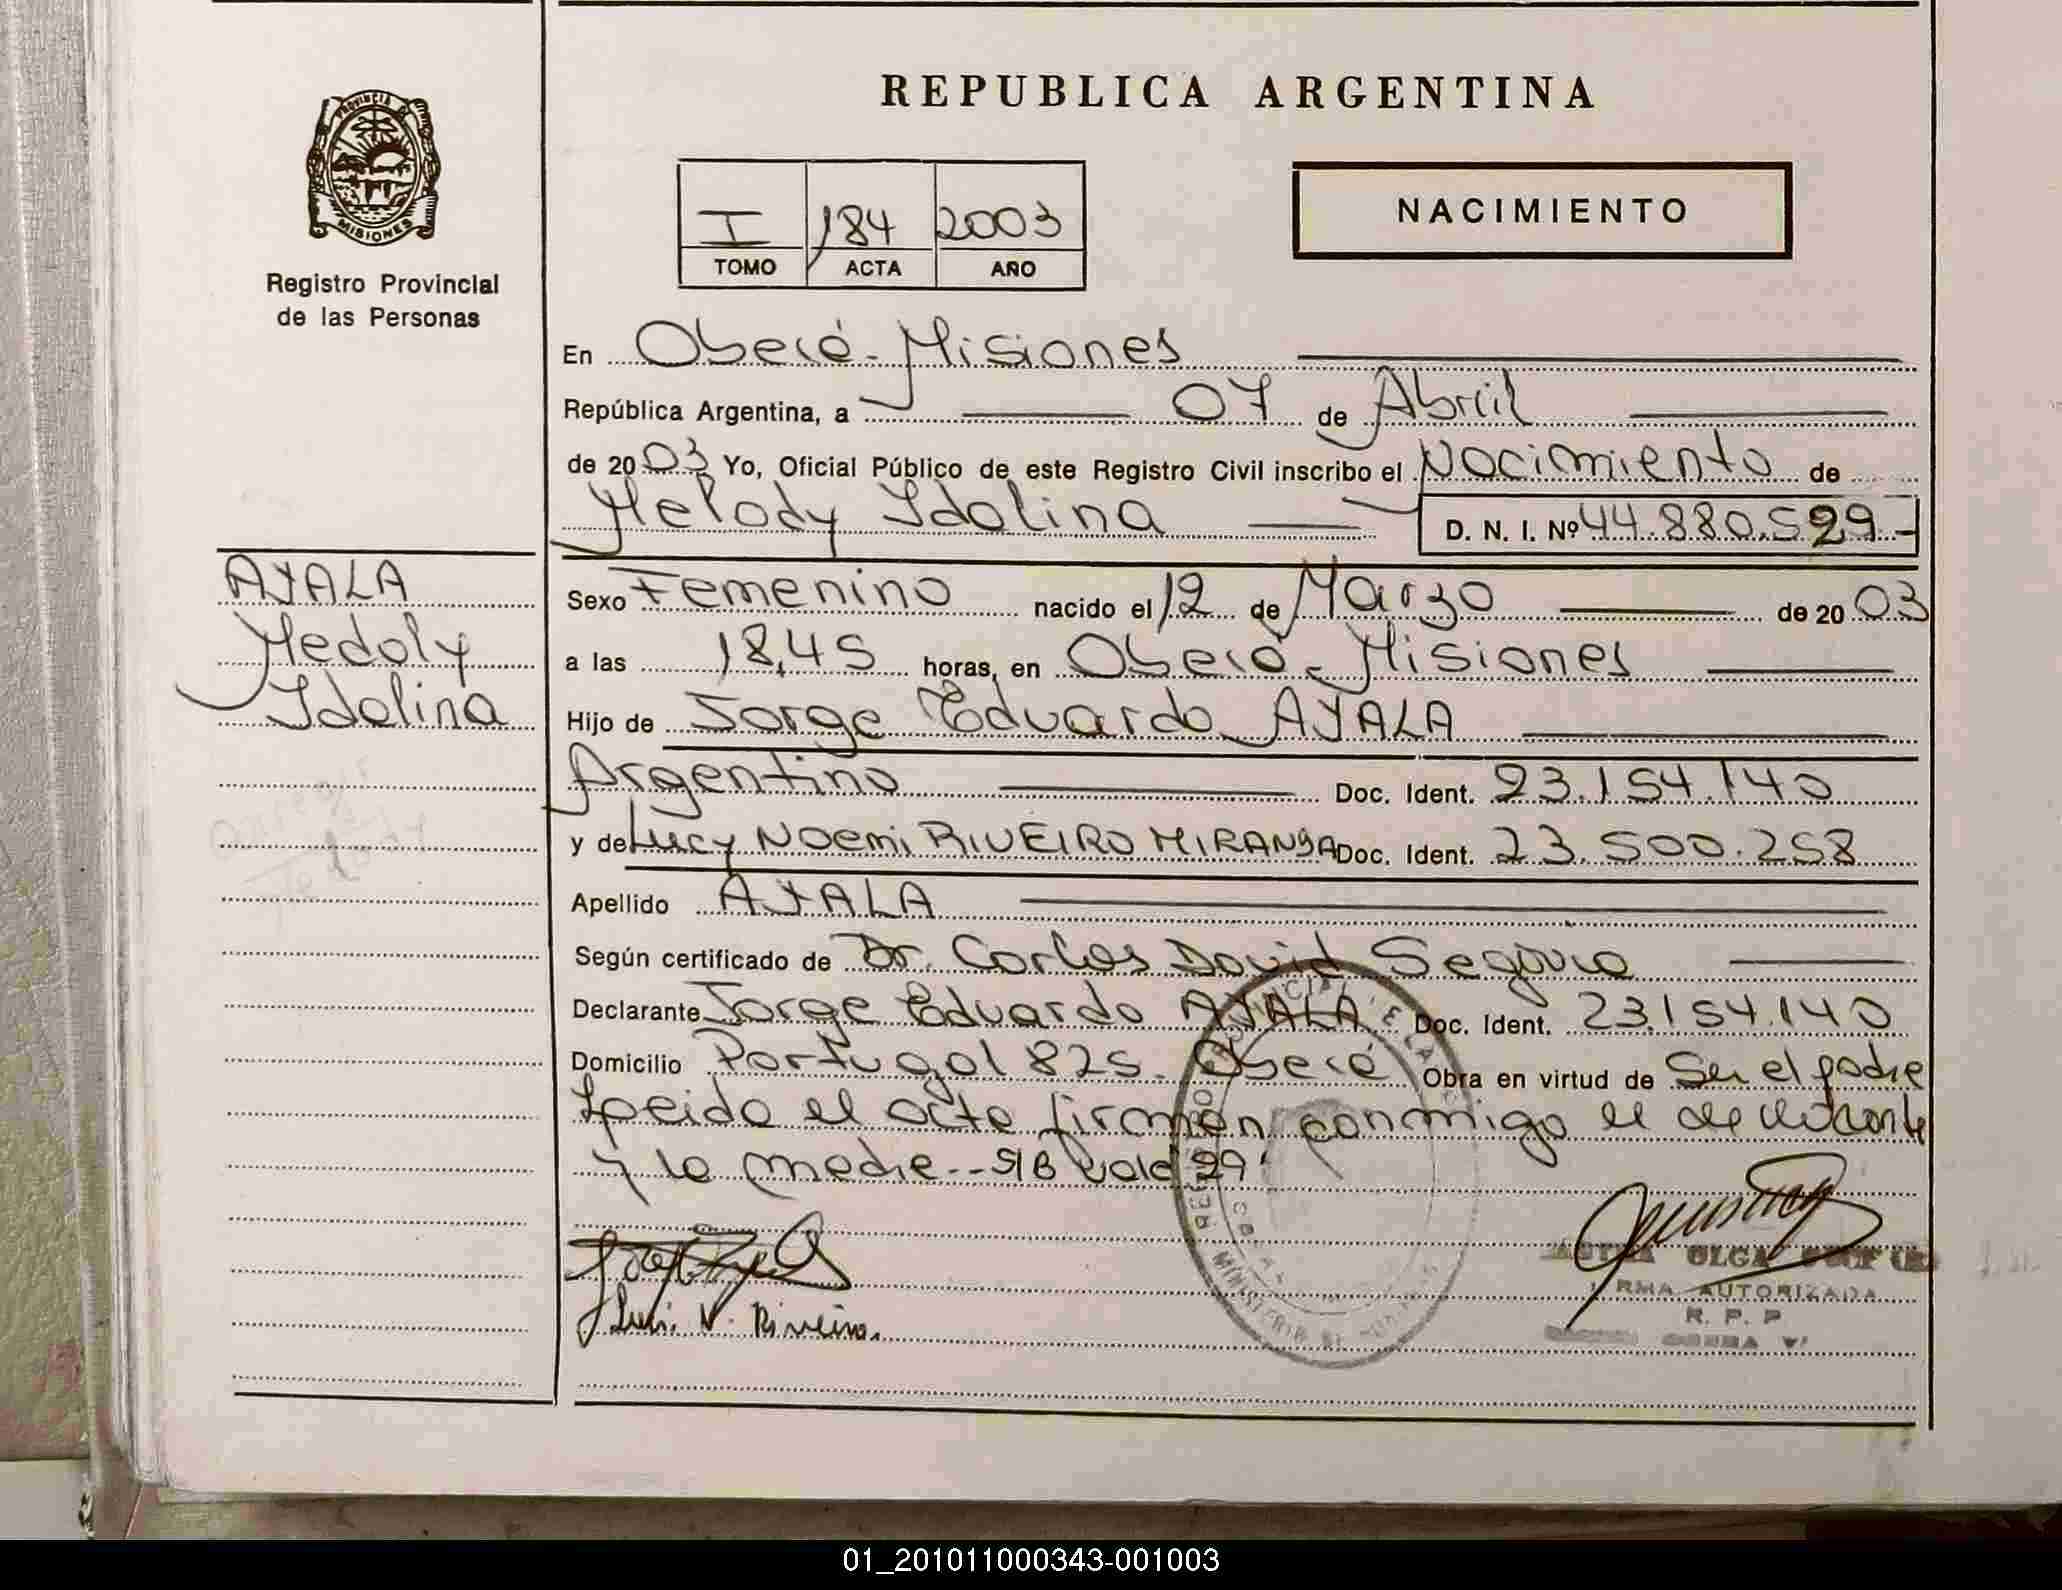 REPUBLICA ARGENTINA
PROVINCIA DE
MISIONES
Registro Provincial
de las Personas
I 184 2003
TOMO ACTA AÑO
NACIMIENTO
En Oberá - Misiones
República Argentina, a 07 de Abril
de 2003 Yo, Oficial Público de este Registro Civil inscribo el Nacimiento de
Melody Idalina
D. N. I. Nº 44.880.529-
AYALA
Medoly
Idalina
Sexo Femenino nacido el 12 de Marzo de 2003
a las 18,45 horas, en Oberá - Misiones
Hijo de Jorge Eduardo AYALA
Argentino Doc. Ident. 23.154.140
y de Lucy NOEMI RIVEIRO MIRANDA Doc. Ident. 23.500.258
Apellido AYALA
Según certificado de Dr. Carlos David Segovia
Declarante Jorge Eduardo AYALA Doc. Ident. 23.154.140
Domicilio Portugal 825. Oberá Obra en virtud de Ser el padre
Leido el acta firman conmigo el declarante
y la madre.-- S/B vale 29
OLGA
FIRMA AUTORIZADA
R. P. P
OBERA
01_201011000343-001003